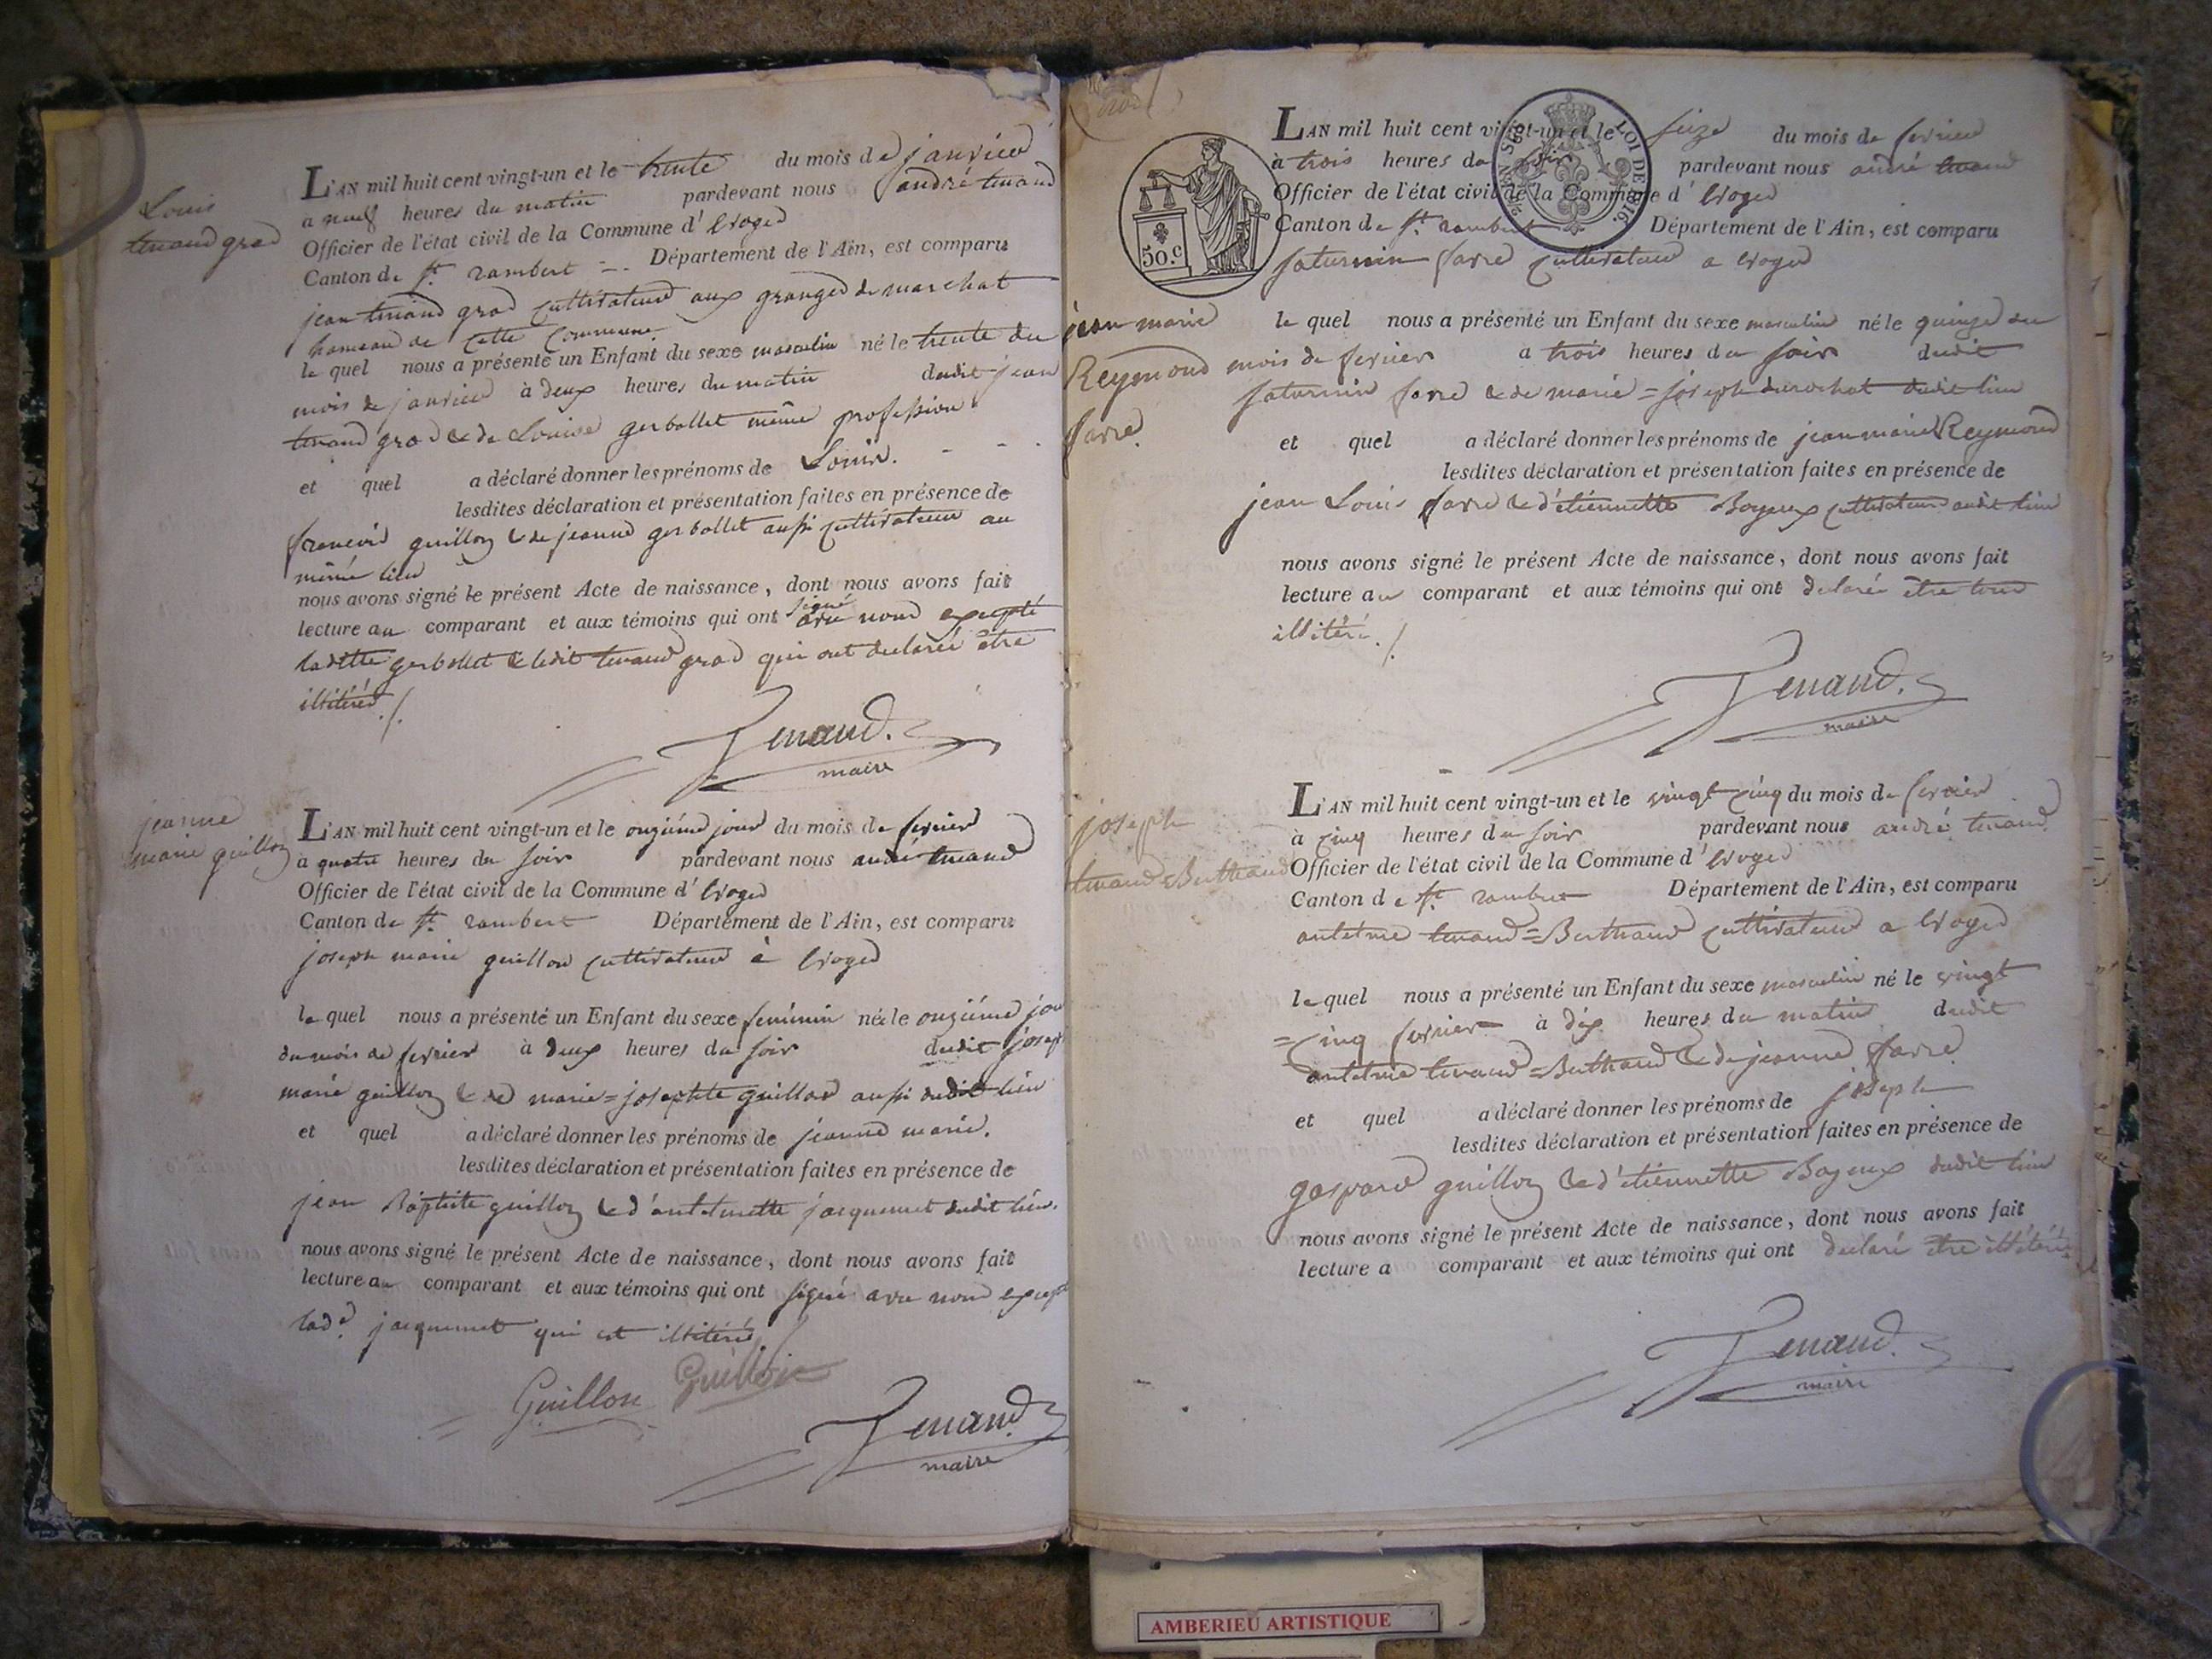 Louis
tenand gros
L'AN mil huit cent vingt-un et le trente du mois de janvier
a neuf heures du matin pardevant nous andré tenand
Officier de l'état civil de la Commune d'
Canton de St. rambert Département de l'Ain, est comparu
jean tenand gros cultivateur aux granges de marchat
hameau de cette Commune
le quel nous a présenté un Enfant du sexe masculin né le trente du
mois de janvier à deux heures du matin dudit jean
tenand gros & de Louise gerbollet même profession
et quel a déclaré donner les prénoms de Louis.
lesdites déclaration et présentation faites en présence de
francois guillon & de jeanne gerbollet aussi cultivateur au
même lieu
nous avons signé le présent Acte de naissance, dont nous avons fait
lecture au comparant et aux témoins qui ont signé avec nous excepté
laditte gerbollet & ledit tenand gros qui ont declarée être
illitérés ./.
Tenand.
maire
jeanne
marie guillon
L'AN mil huit cent vingt-un et le onziéme jour du mois de fevrier
à quatre heures du soir pardevant nous andré tenand
Officier de l'état civil de la Commune d'
Canton de St. rambert Département de l'Ain, est comparu
joseph marie guillon cultivateur à
le quel nous a présenté un Enfant du sexe feminin née le onziéme jour
du mois de fevrier à deux heures du soir dudit joseph
marie guillon & de marie=josephte guillon aussi dudit lieu
et quel a déclaré donner les prénoms de jeanne marie.
lesdites déclaration et présentation faites en présence de
jean Baptiste guillon & d'antelmette jacquemet dudit lieu.
nous avons signé le présent Acte de naissance, dont nous avons fait
lecture au comparant et aux témoins qui ont signé avec nous excepté
lade. jacquemet qui est illitérée ./.
Guillon Guillon
Tenand.
maire
50.C
LOI DE 1816.
L'AN mil huit cent vingt-un et le seize du mois de fevrier
à trois heures du soir pardevant nous andré tenand
Officier de l'état civil de la Commune d'
Canton de St. rambert Département de l'Ain, est comparu
saturnin favre cultivateur a
jean marie
Reymond
favre.
le quel nous a présenté un Enfant du sexe masculin né le quinze du
mois de fevrier a trois heures du soir dudit
saturnin favre & de marie=joseph durochat dudit lieu
et quel a déclaré donner les prénoms de jean marie Reymond
lesdites déclaration et présentation faites en présence de
jean Louis favre & d'étiennette Bayeux cultivateur audit lieu
nous avons signé le présent Acte de naissance, dont nous avons fait
lecture au comparant et aux témoins qui ont declarés être tous
illitéré ./.
Tenand.
maire
joseph
tenand=Berthand
L'AN mil huit cent vingt-un et le vingt cinq du mois de fevrier
à cinq heures du soir pardevant nous andré tenand
Officier de l'état civil de la Commune d'
Canton de St. rambert Département de l'Ain, est comparu
antelme tenand=Berthand cultivateur a
le quel nous a présenté un Enfant du sexe masculin né le vingt
=cinq fevrier à dix heures du matin dudit
antelme tenand=Berthand & de jeanne favre.
et quel a déclaré donner les prénoms de joseph
lesdites déclaration et présentation faites en présence de
gaspard guillon & d'étiennette Bayeux dudit lieu
nous avons signé le présent Acte de naissance, dont nous avons fait
lecture a comparant et aux témoins qui ont declaré être illitérés
Tenand.
maire
AMBERIEU ARTISTIQUE